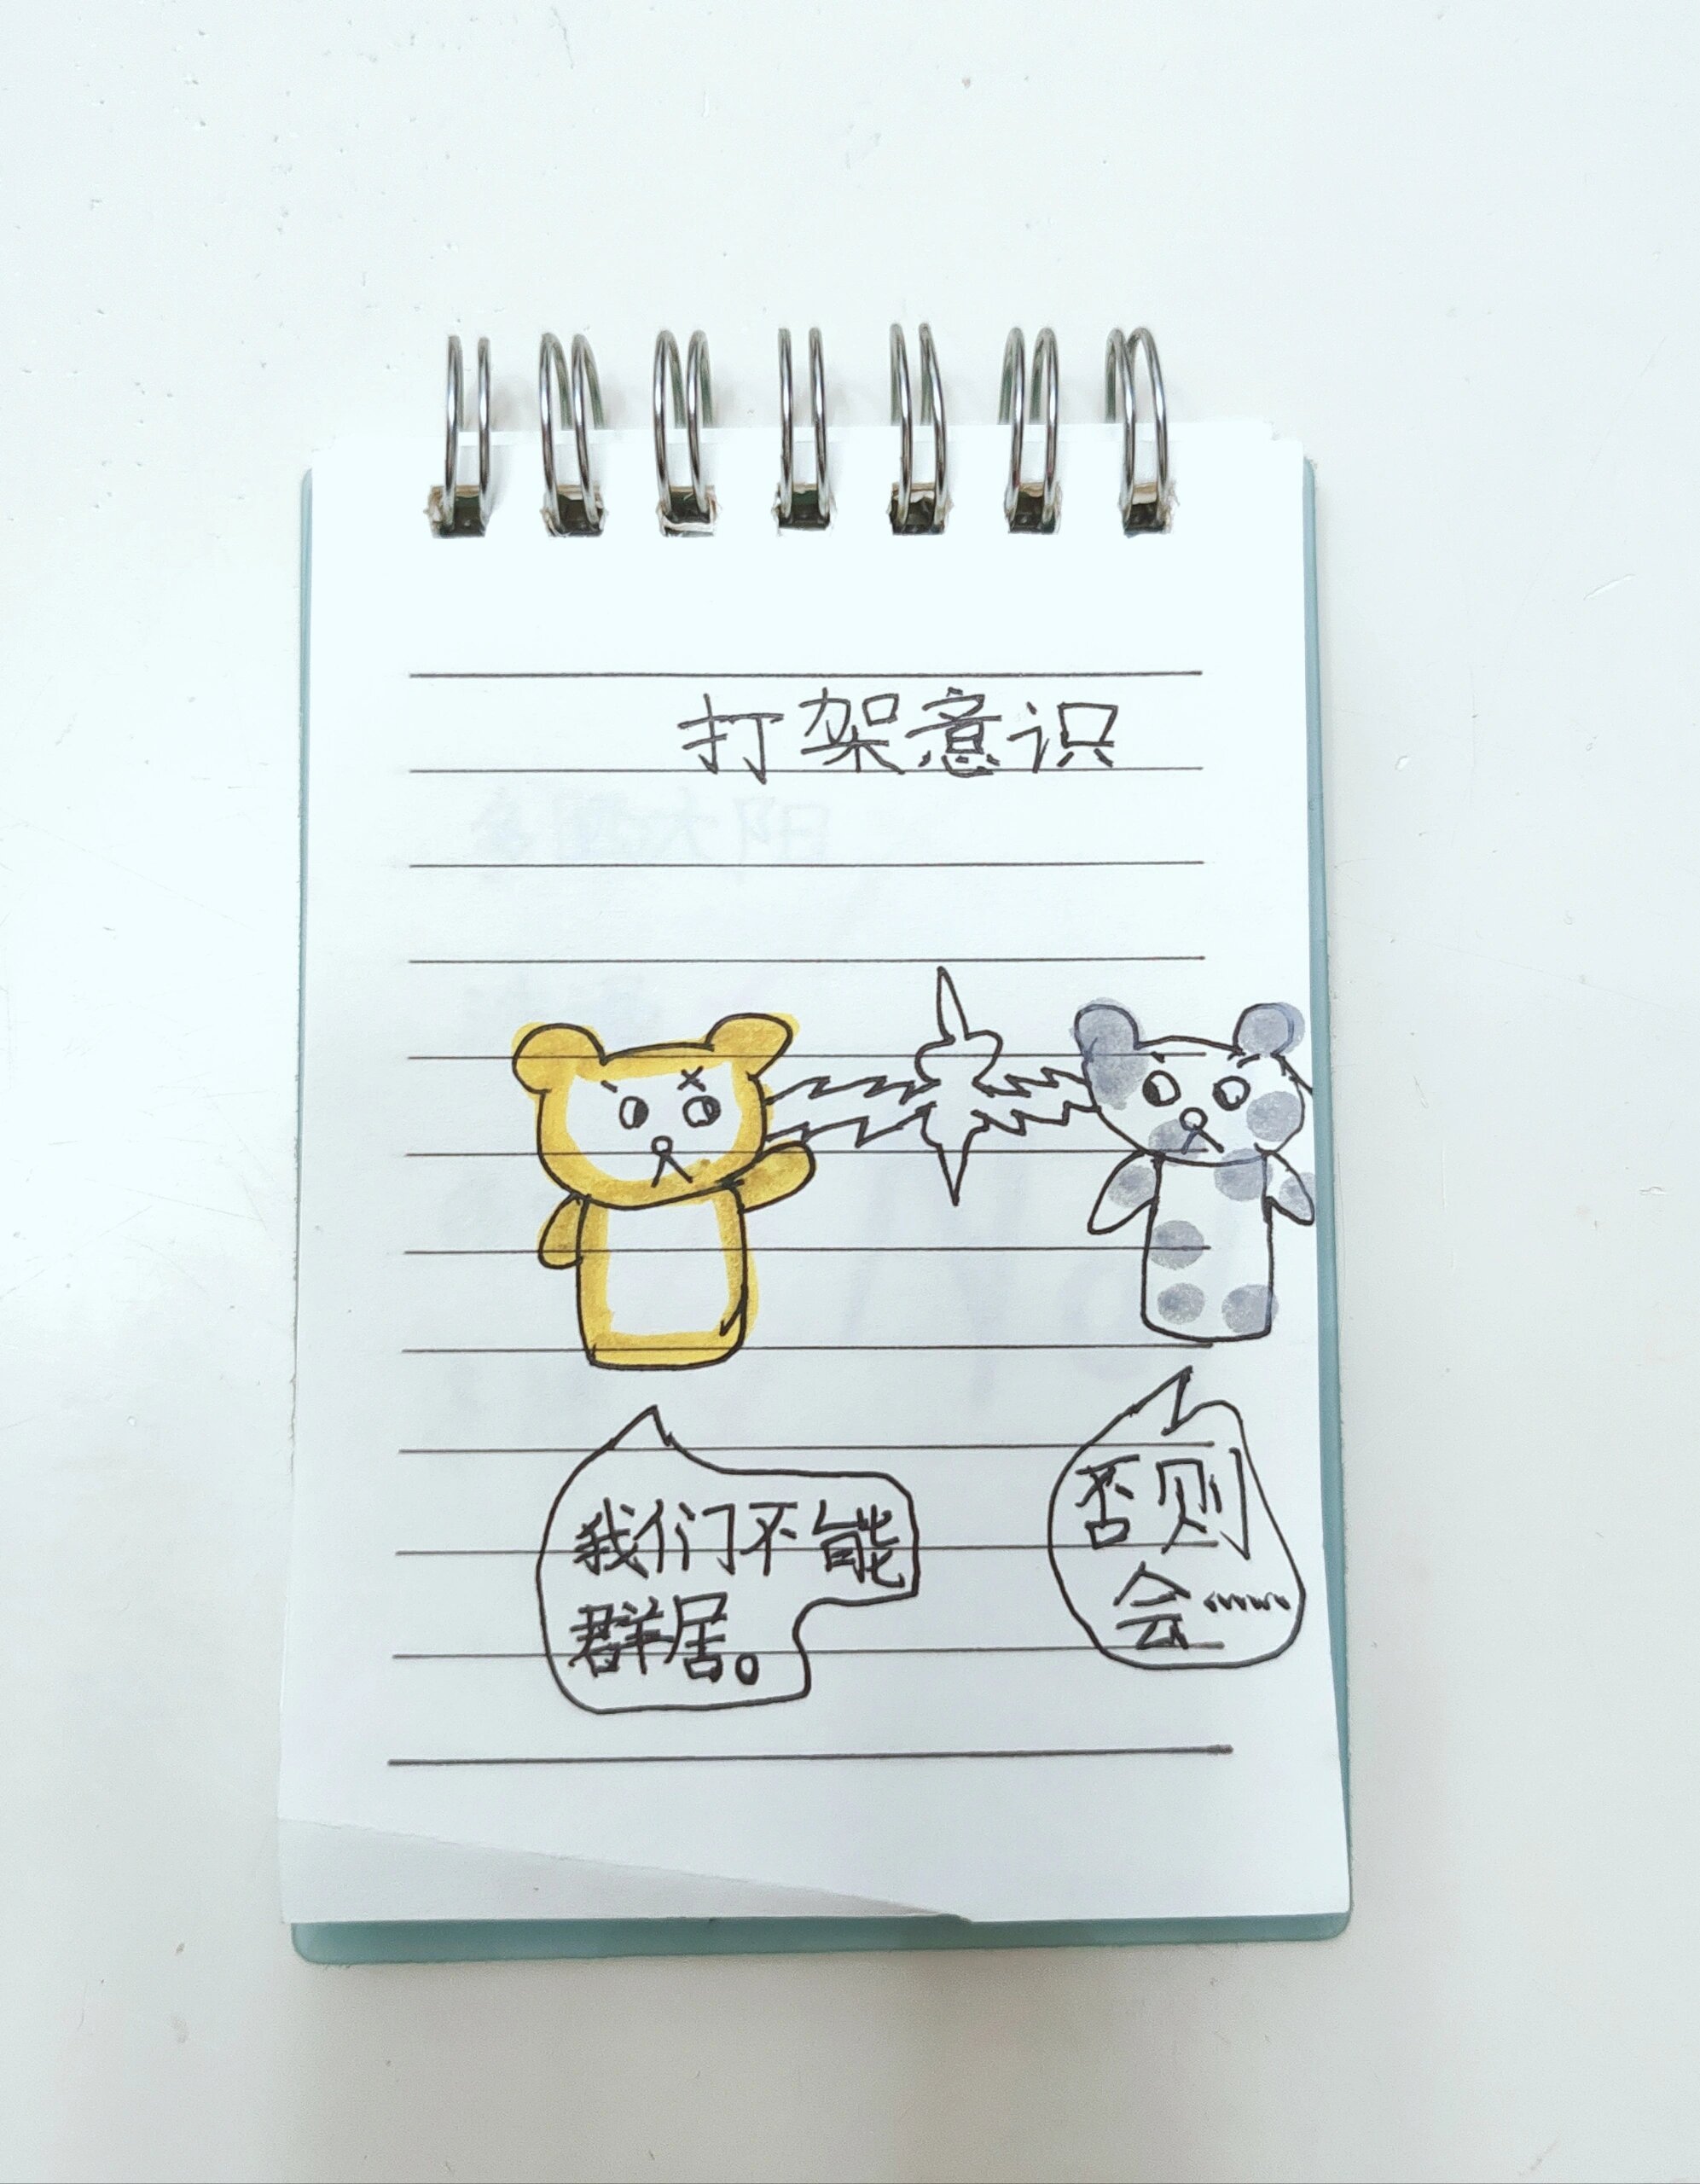 打架意识
我们不能
群居。
否则
会……